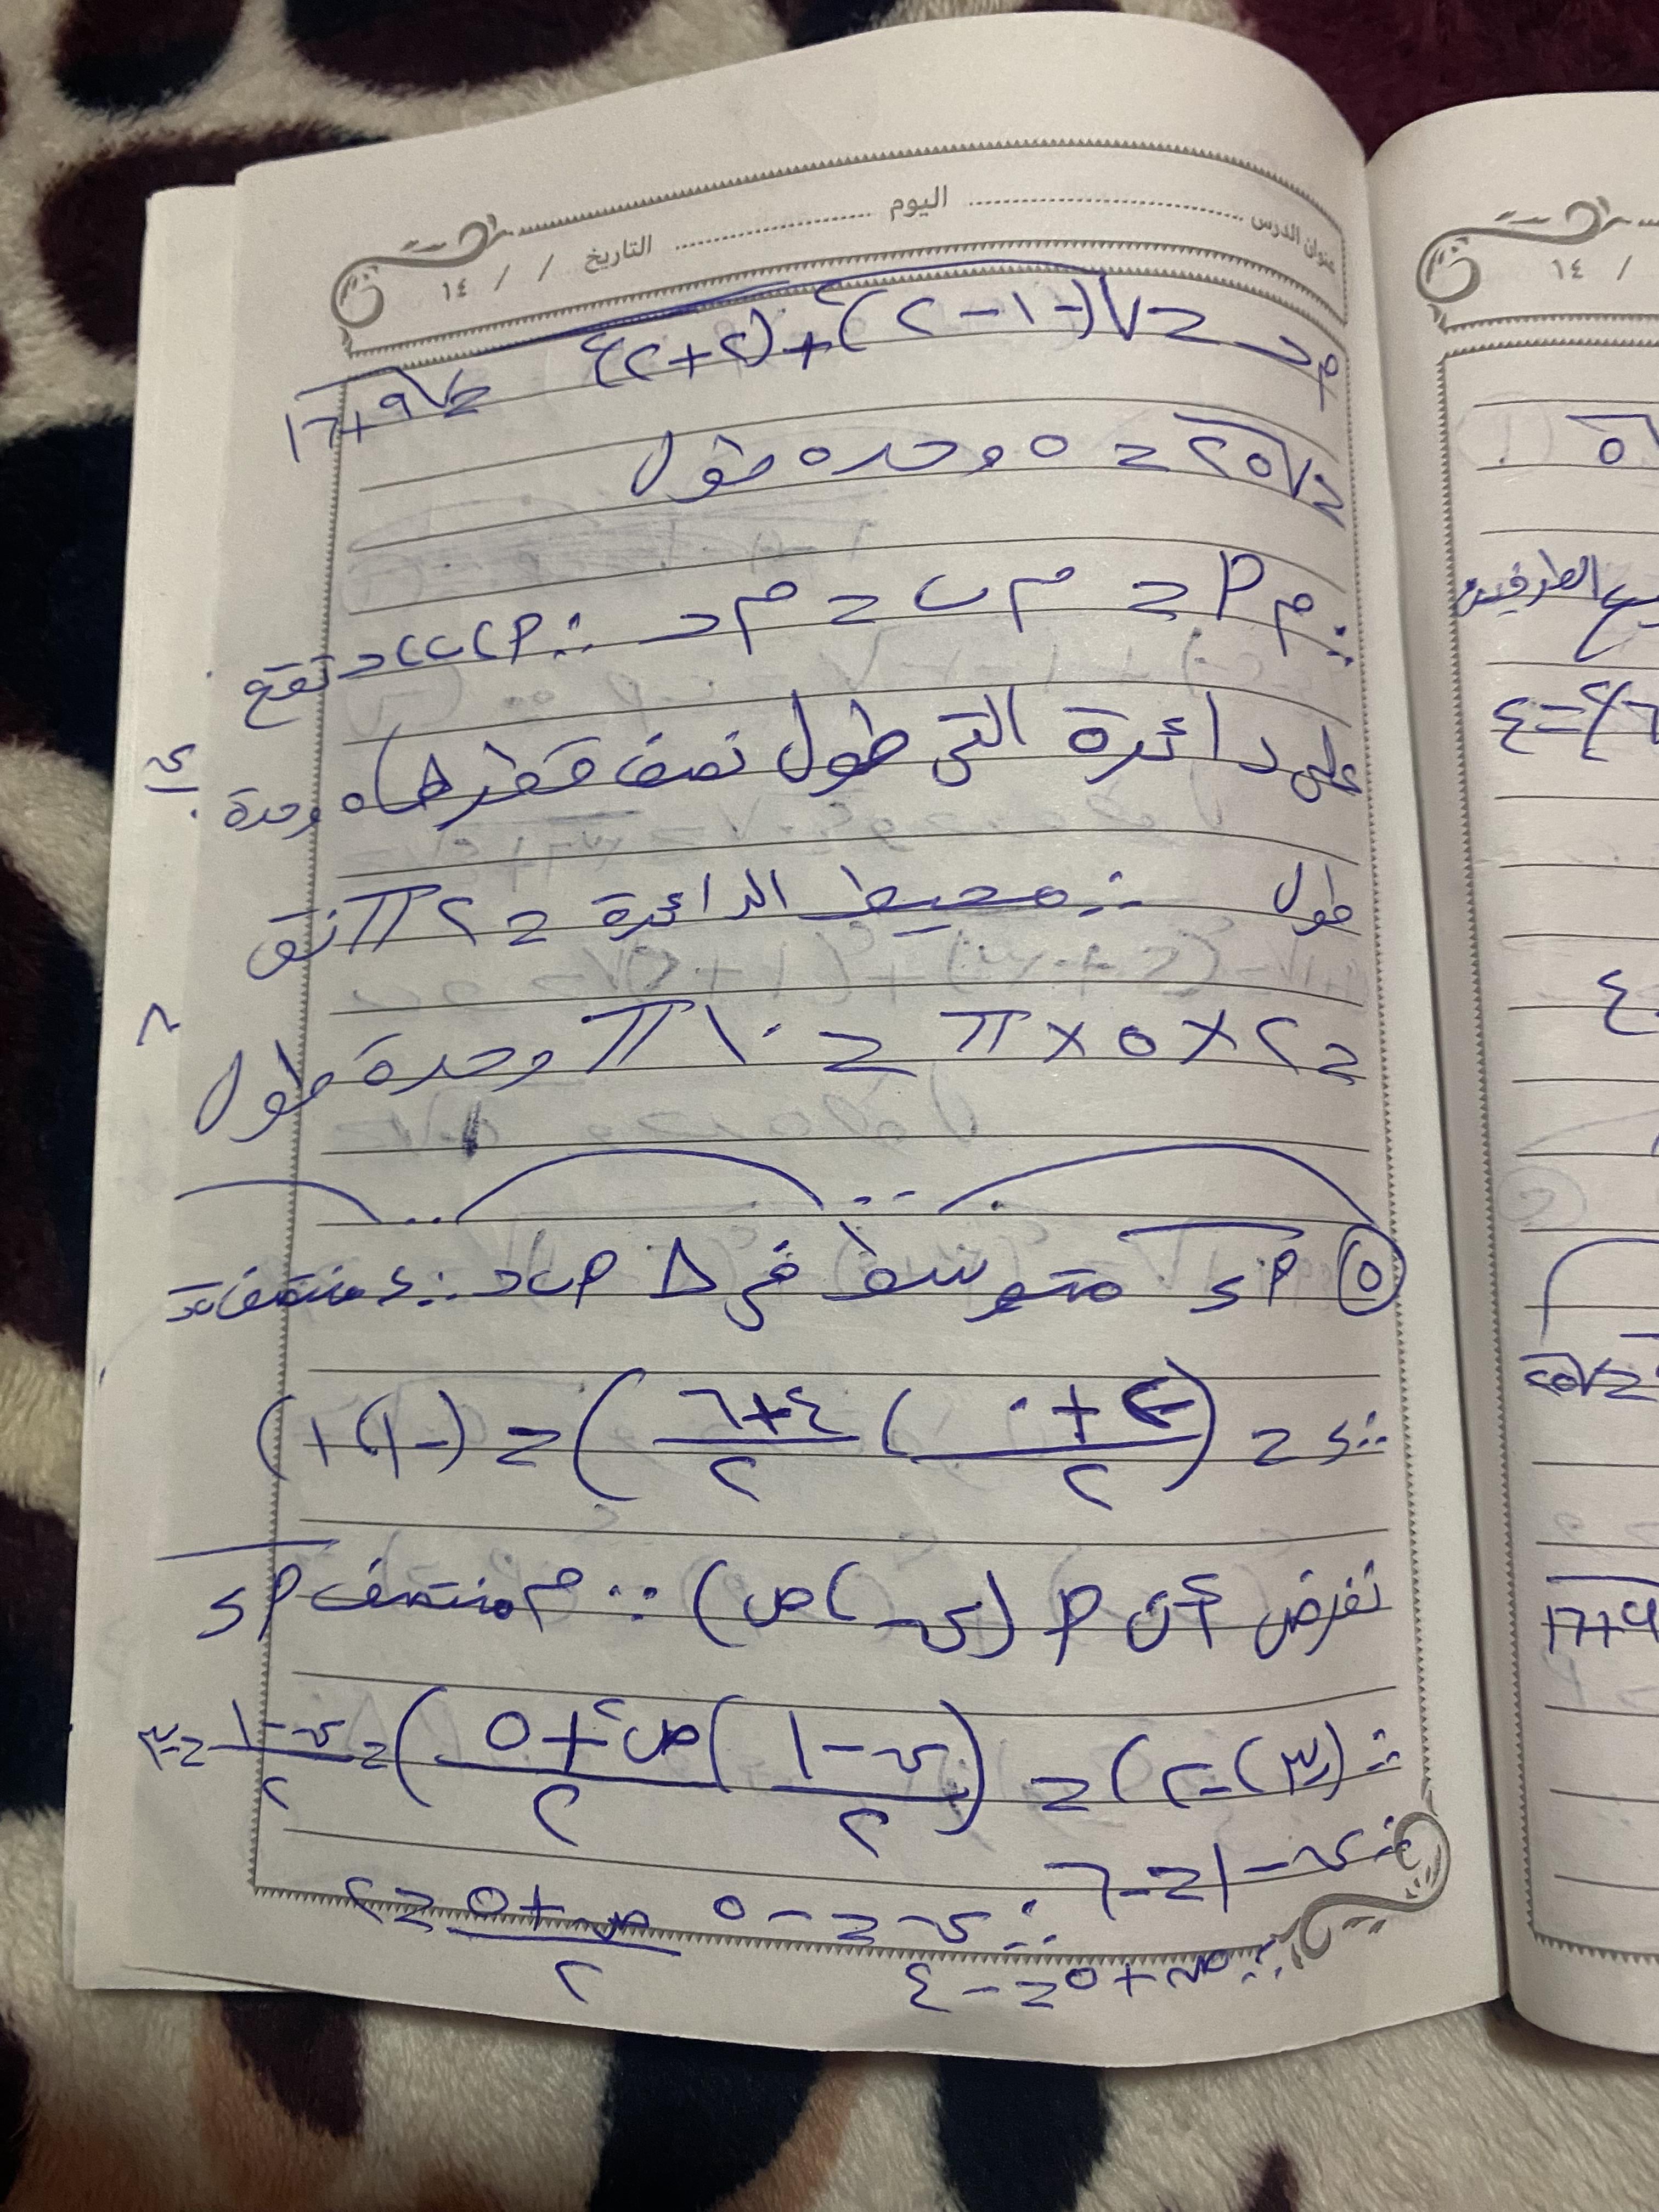 عنوان الدرس ........ اليوم ........ التاريخ / / ١٤
م ج = √(-١-٢)² + (٢+٢)² = √٩+١٦
= √٢٥ = ٥ وحده طول
∵ م أ = م ب = م ج ∴ أ، ب، ج تقع
على دائرة التى طول نصف قطرها ٥ وحدة
طول ∴ محيط الدائرة = ٢ π نق
= ٢ × ٥ × π = ١٠ π وحدة طول
٥ أ د متوسط فى Δ أ ب ج ∴ د منتصف
∴ د = ( + ٠ / ٢ ، ٤+٦ / ٢) = (-١،
نفرض أن أ (س، ص) ∵ م منتصف أ د
∴ (-٣، -٢) = (س-١ / ٢ ، ص+٥ / ٢) = س-١ / ٢ = -٣
∴ س-١ = -٦ ∴ س = -٥ ص+٥ / ٢ = -٢
∴ ص+٥ = -٤
١٤ /
الطرفين
١٦+٩